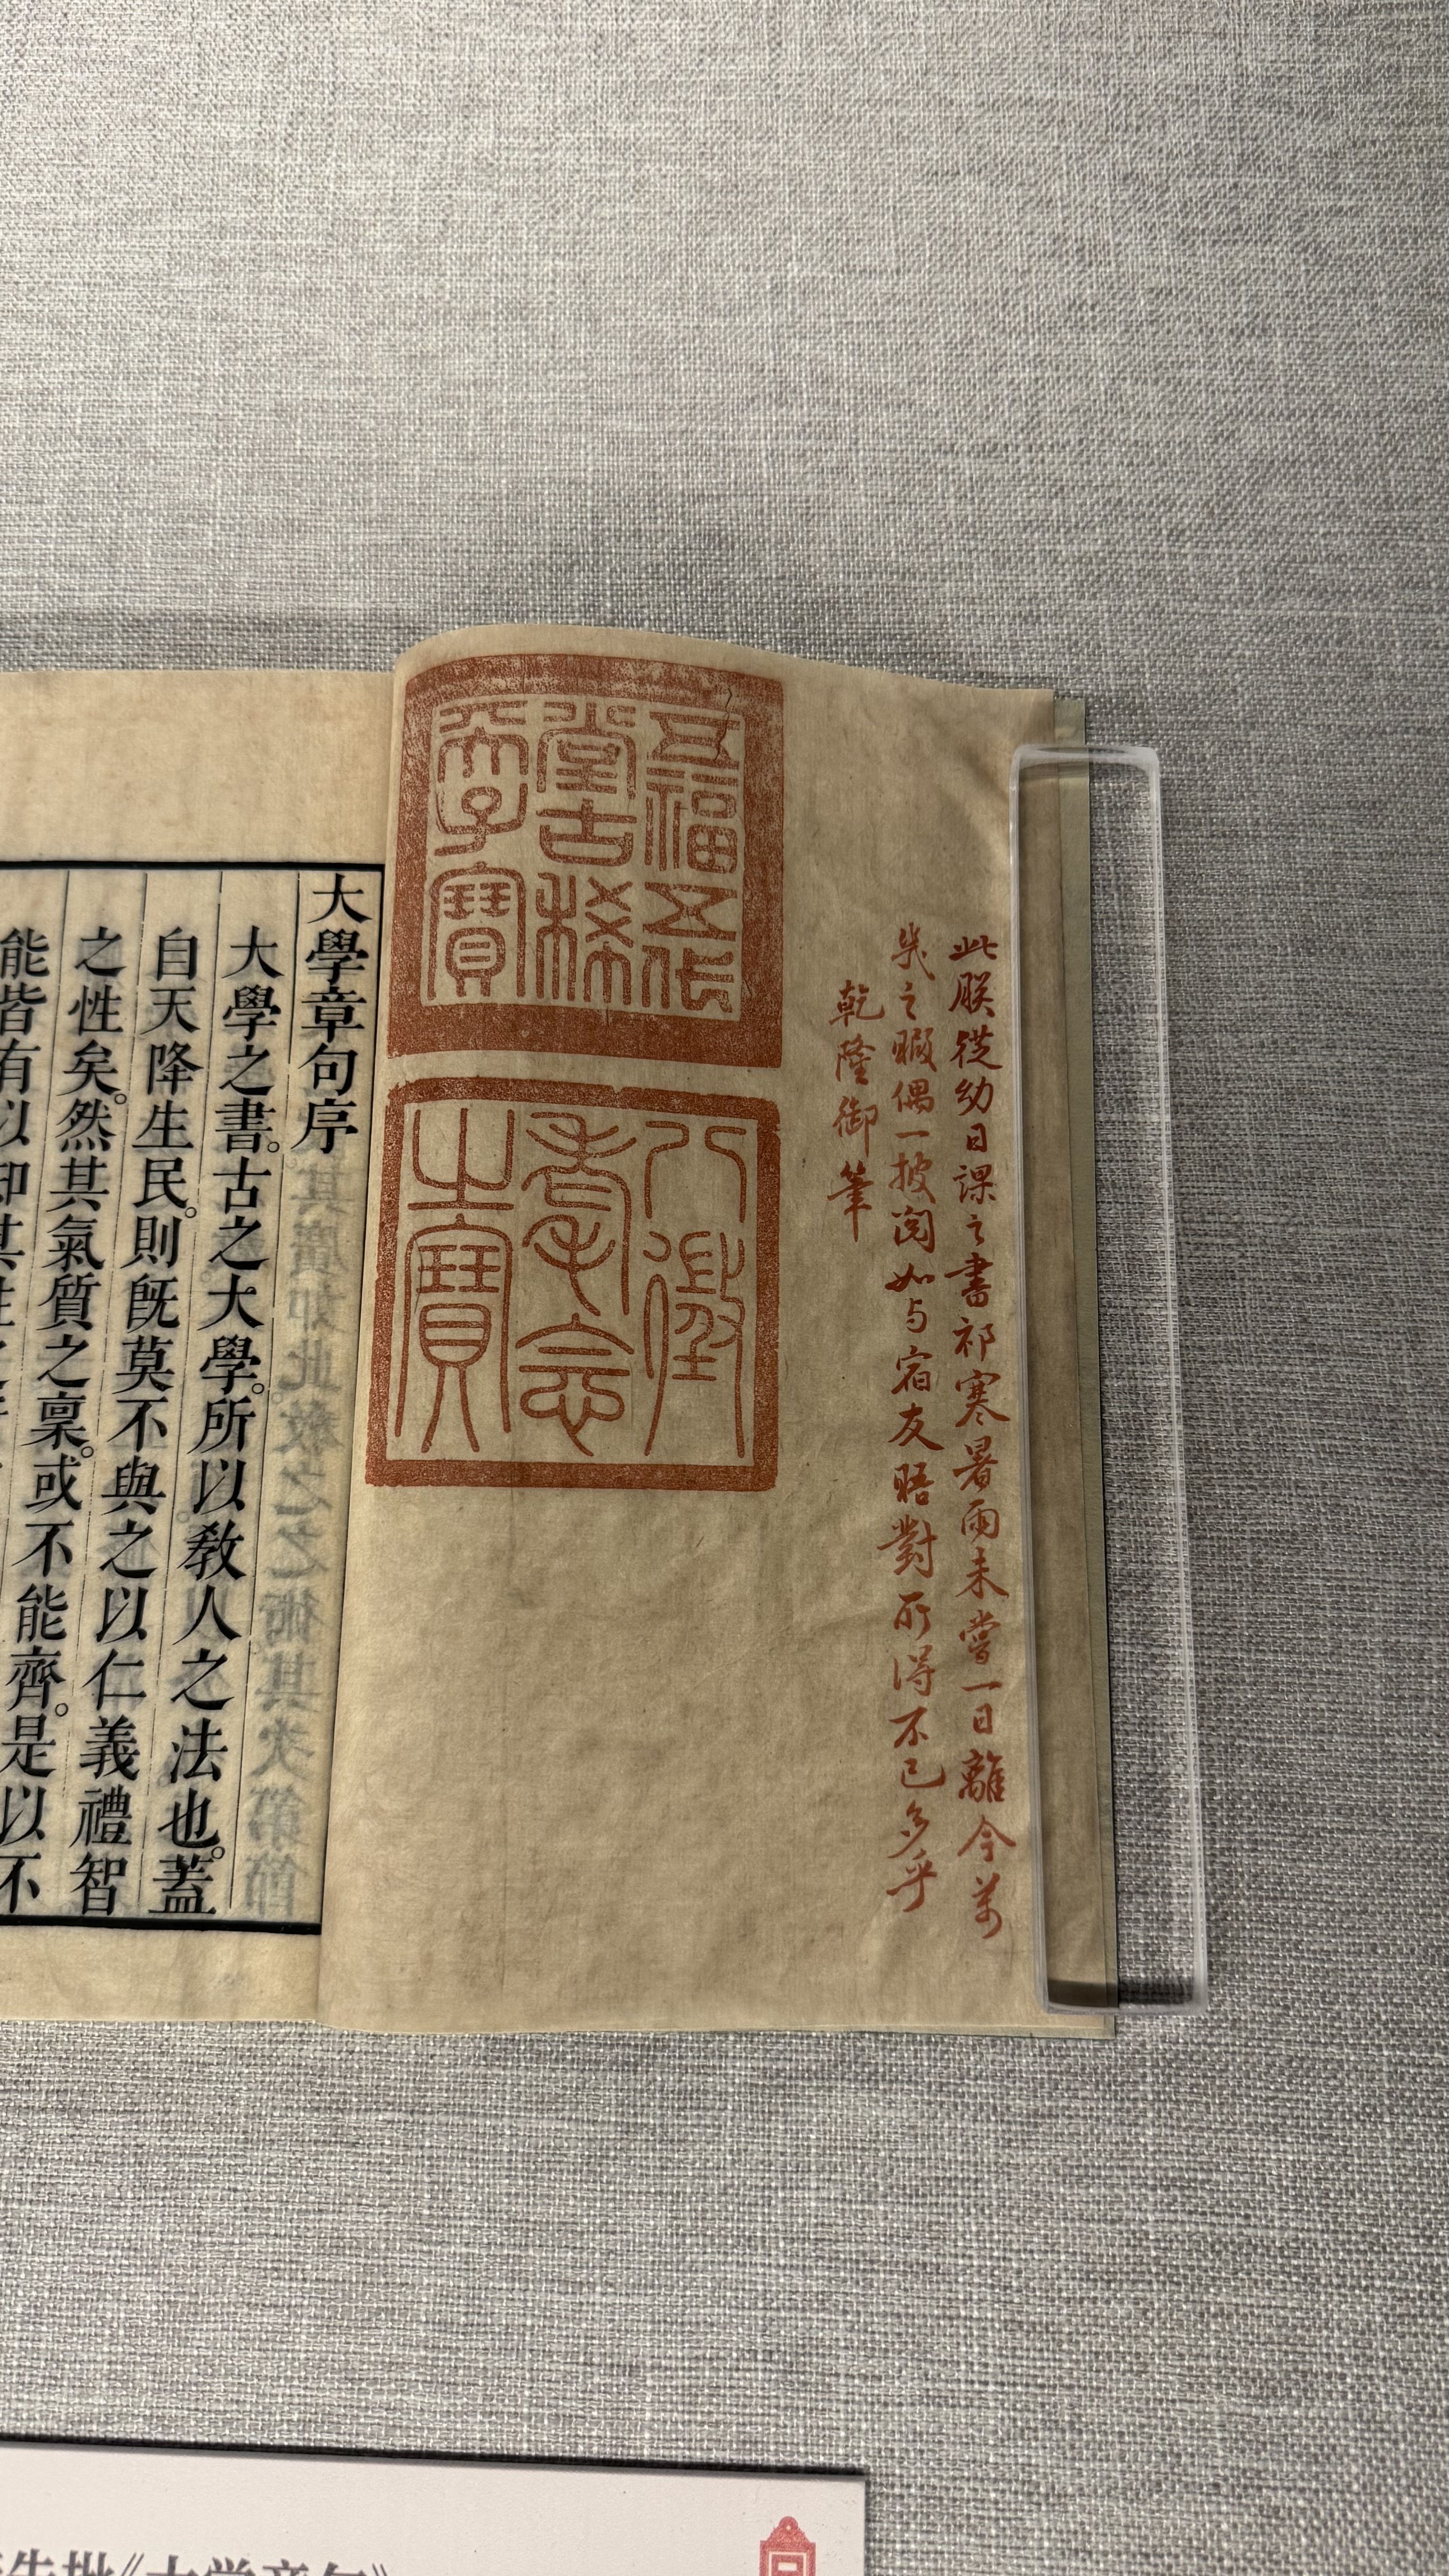 此朕從幼日課之書祁寒暑雨未嘗一日離今萬
幾之暇偶一披閱如与宿友晤對所得不已多乎
乾隆御筆
五福五代
堂古稀
天子寶
八徵
耄念
之寶
大學章句序
大學之書。古之大學。所以敎人之法也。蓋
自天降生民。則旣莫不與之以仁義禮智
之性矣。然其氣質之稟。或不能齊。是以不
能皆有以知其性之
批《大學章句》